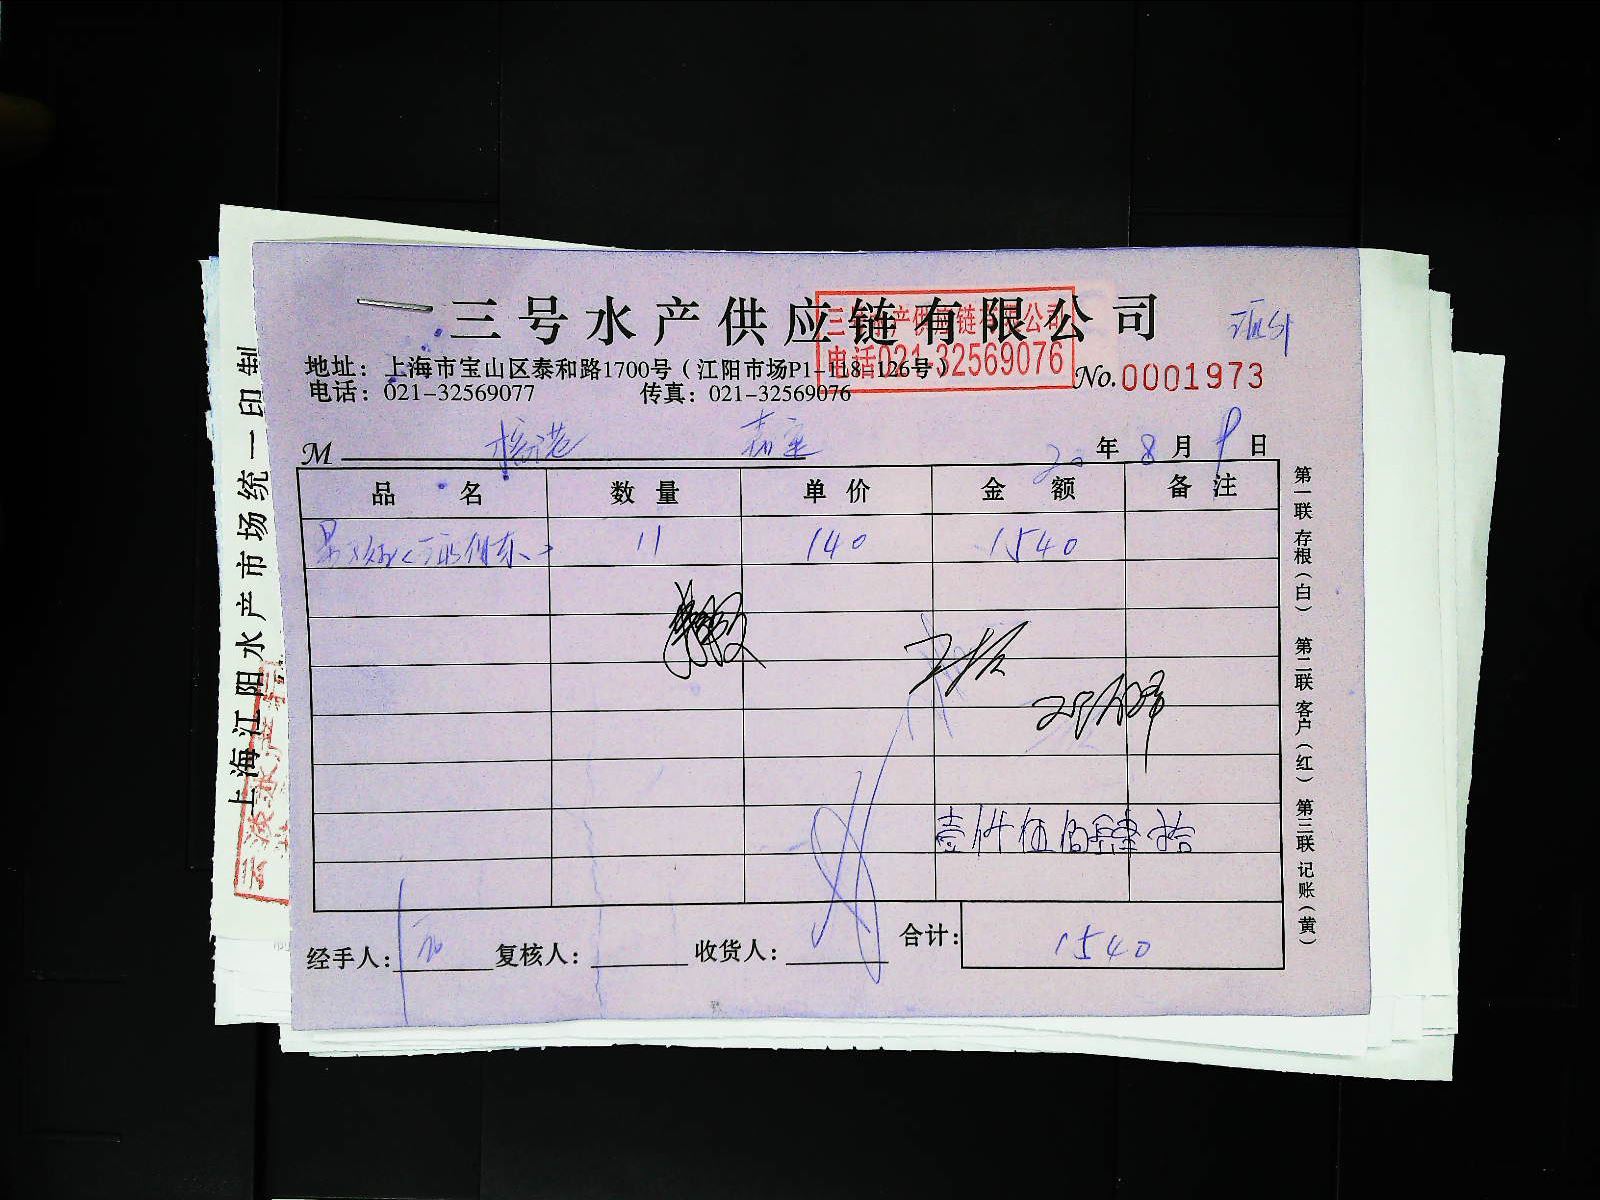 三号水产供应链有限公司
三号水产供应链有限公司
电话021-32569076
地址：上海市宝山区泰和路1700号（江阳市场P1-118-126号）
电话：021-32569077 传真：021-32569076
No.0001973
M 杨港 嘉定 20年8月9日
品名 数量 单价 金额 备注
11 140 1540
壹仟伍佰肆拾
经手人： 复核人： 收货人： 合计： 1540
第一联 存根（白） 第二联 客户（红） 第三联 记账（黄）
上海江阳水产市场统一印制